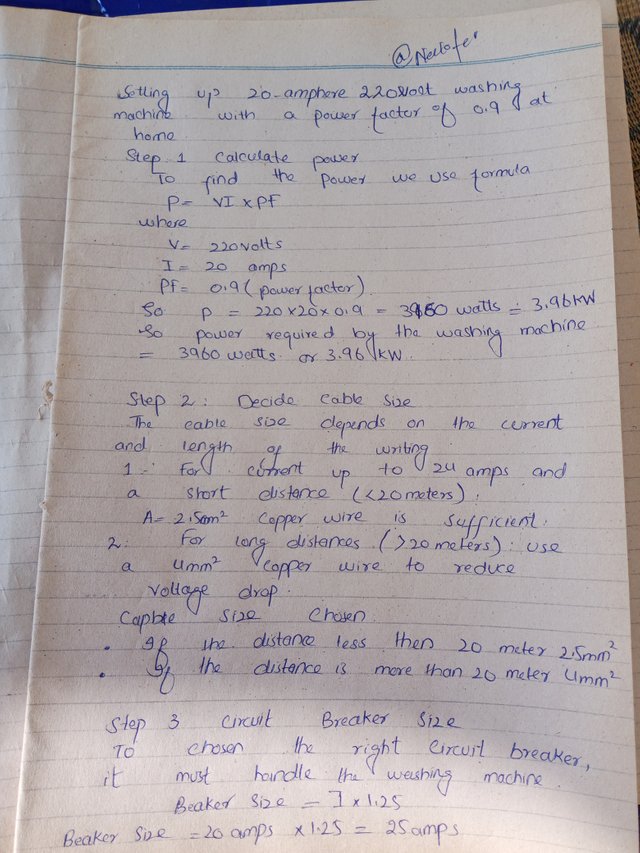 @Neelofer
Setting up 20-amphere 220volt washing
machine with a power factor of 0.9 at
home
Step 1 Calculate power
To find the power we use formula
P= VI x PF
where
V= 220volts
I= 20 amps
PF= 0.9 (power factor)
So P = 220 x 20 x 0.9 = 3960 watts = 3.96kW
So power required by the washing machine
= 3960 watts or 3.96 kW.
Step 2: Decide Cable Size
The cable size depends on the current
and length of the writing
1- For current up to 24 amps and
a short distance (<20 meters).
A= 2.5mm² Copper wire is sufficient.
2: For long distances (>20 meters): use
a 4mm² Copper wire to reduce
voltage drop.
Size Chosen
• If the distance less then 20 meter 2.5mm²
• If the distance is more than 20 meter 4mm²
Step 3 Circuit Breaker Size
To chosen the right Circuit breaker,
it must handle the washing machine
Beaker Size = I x 1.25
Beaker Size = 20 amps x 1.25 = 25 amps